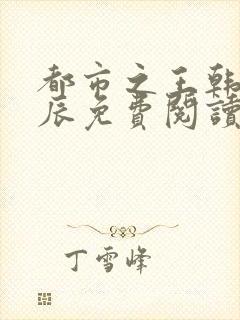 都市之王韩
辰免費閱讀
丁雪峰